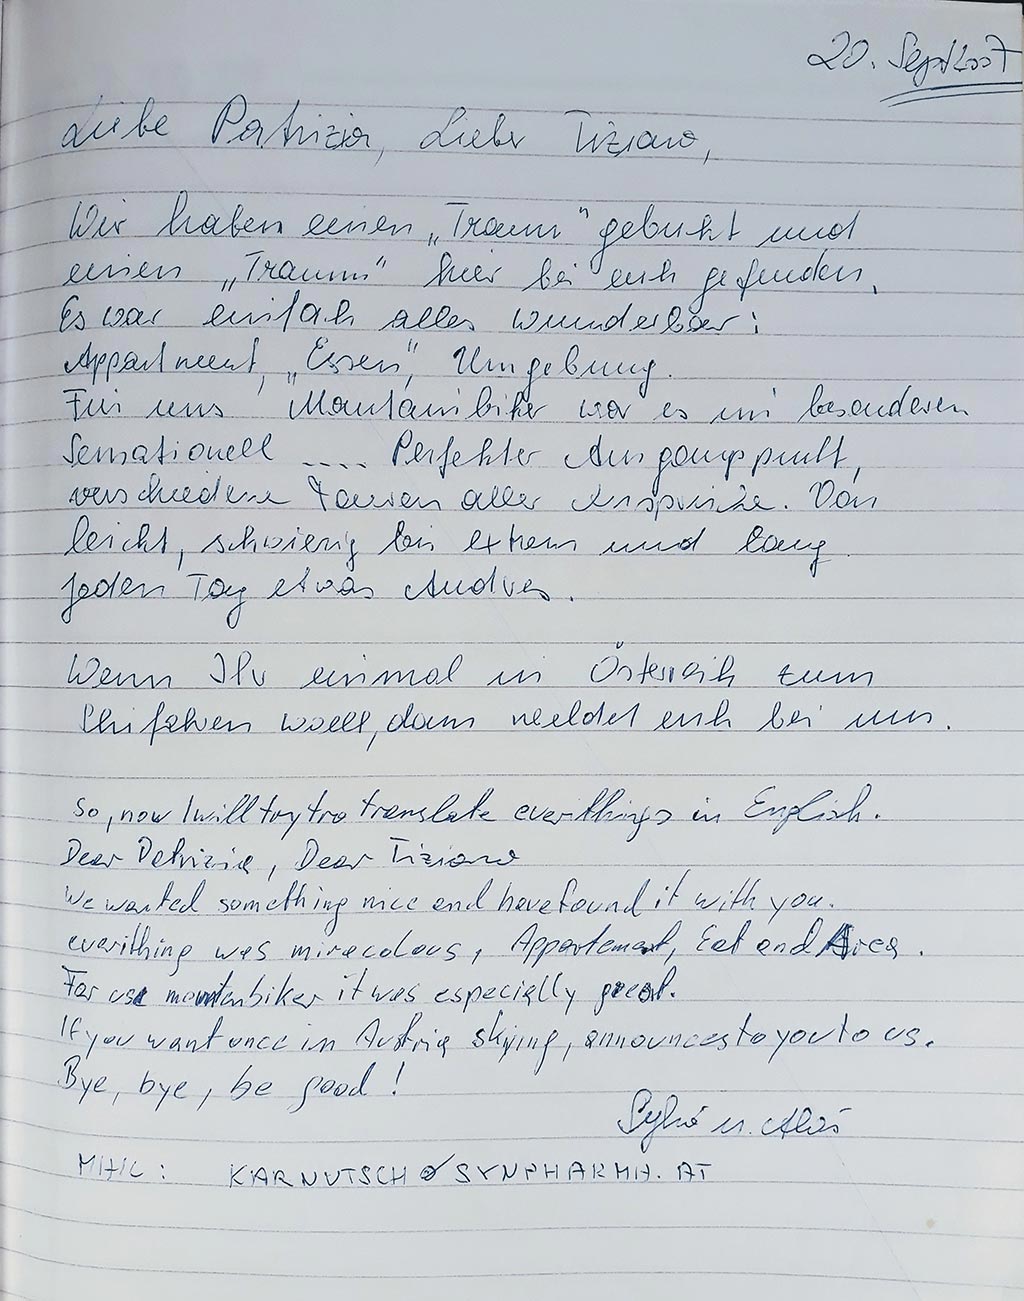 20. Sept 2007
Liebe Patrizia, Lieber Tiziano,
Wir haben einen „Traum" gebucht und
einen „Traum" hier bei euch gefunden.
Es war einfach alles wunderbar:
Appartment, „Essen", Umgebung.
Für uns Mountainbiker war es im besonderen
Sensationell .... Perfekter Ausgangspunkt,
verschiedene Touren aller Ansprüche. Von
leicht, schwierig bis extrem und lang
jeden Tag etwas Andres.
Wenn Ihr einmal in Österreich zum
Schifahren wollt, dann meldet euch bei uns.
So, now I will try tro translate everithings in English.
Dear Patrizia, Dear Tiziano
We wanted something nice and have found it with you.
everithing was miracolous, Appartement, Eat and Area.
For us mountenbiker it was especially great.
If you want once in Austria skiing, announces to you to us.
Bye, bye, be good!
u.
MAIL: KARNUTSCH@SYNPHARMA.AT